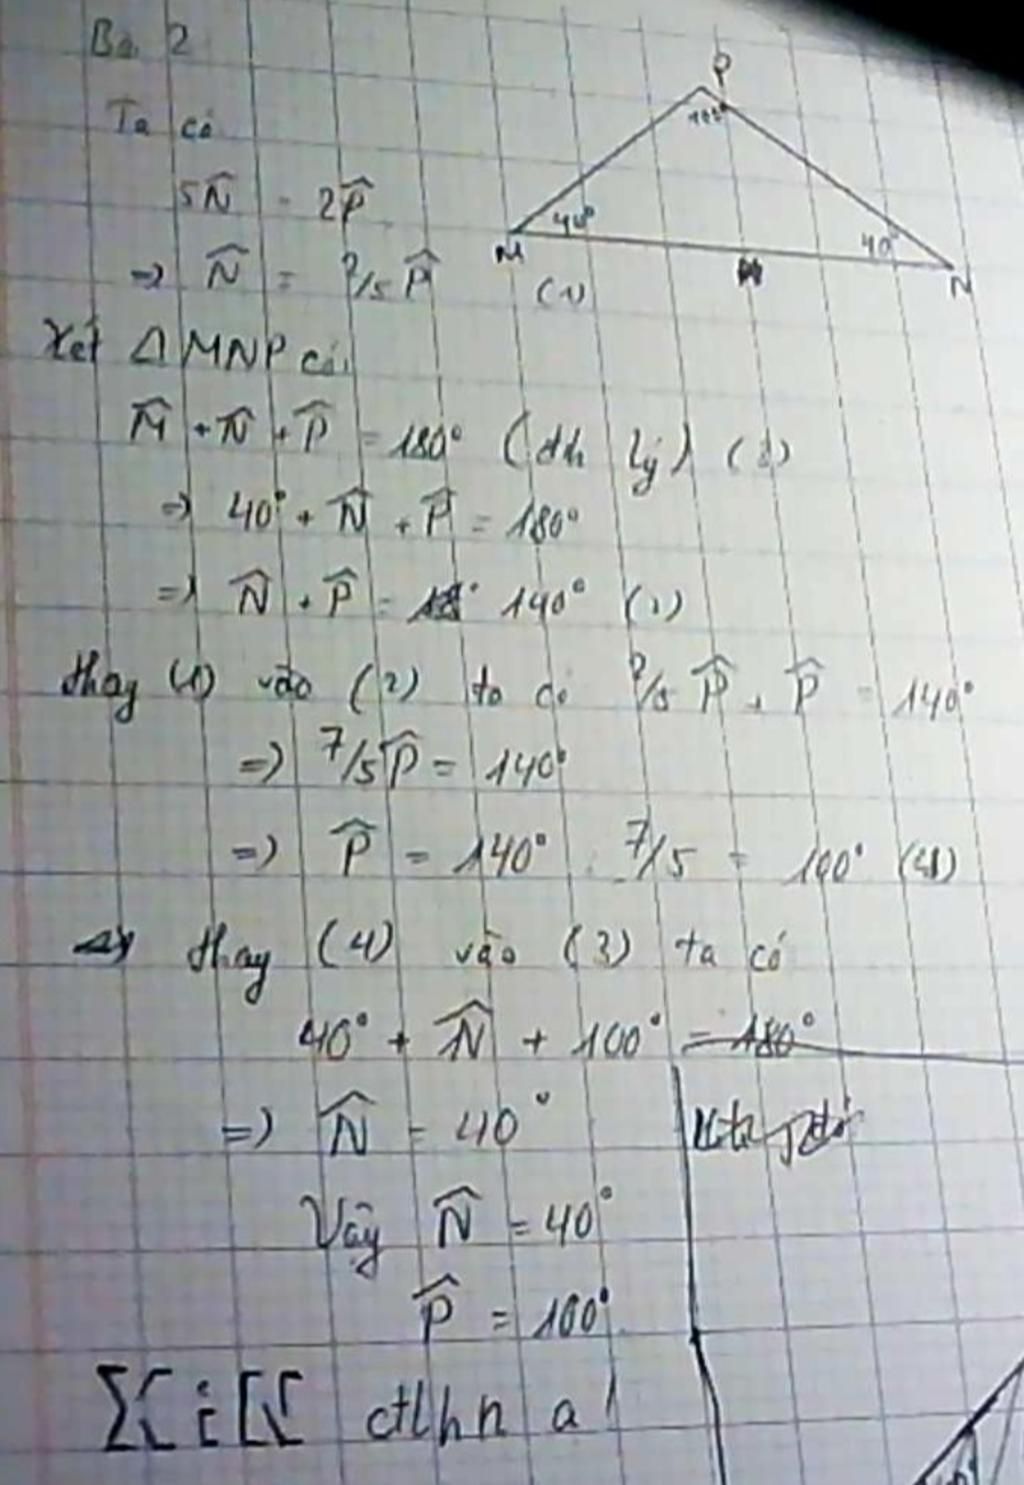 Bài 2
Ta có
5N̂ = 2P̂
=> N̂ = 2/5 P̂ (1)
P
100°
40°
40°
M
N
Xét ΔMNP có
M̂ + N̂ + P̂ = 180° (đh lý) (3)
=> 40° + N̂ + P̂ = 180°
=> N̂ + P̂ = 140° (2)
thay (1) vào (2) ta có 2/5 P̂ + P̂ = 140°
=> 7/5 P̂ = 140°
=> P̂ = 140° : 7/5 = 100° (4)
thay (4) vào (3) ta có
40° + N̂ + 100° = 180°
=> N̂ = 40°
Vậy N̂ = 40°
P̂ = 100°